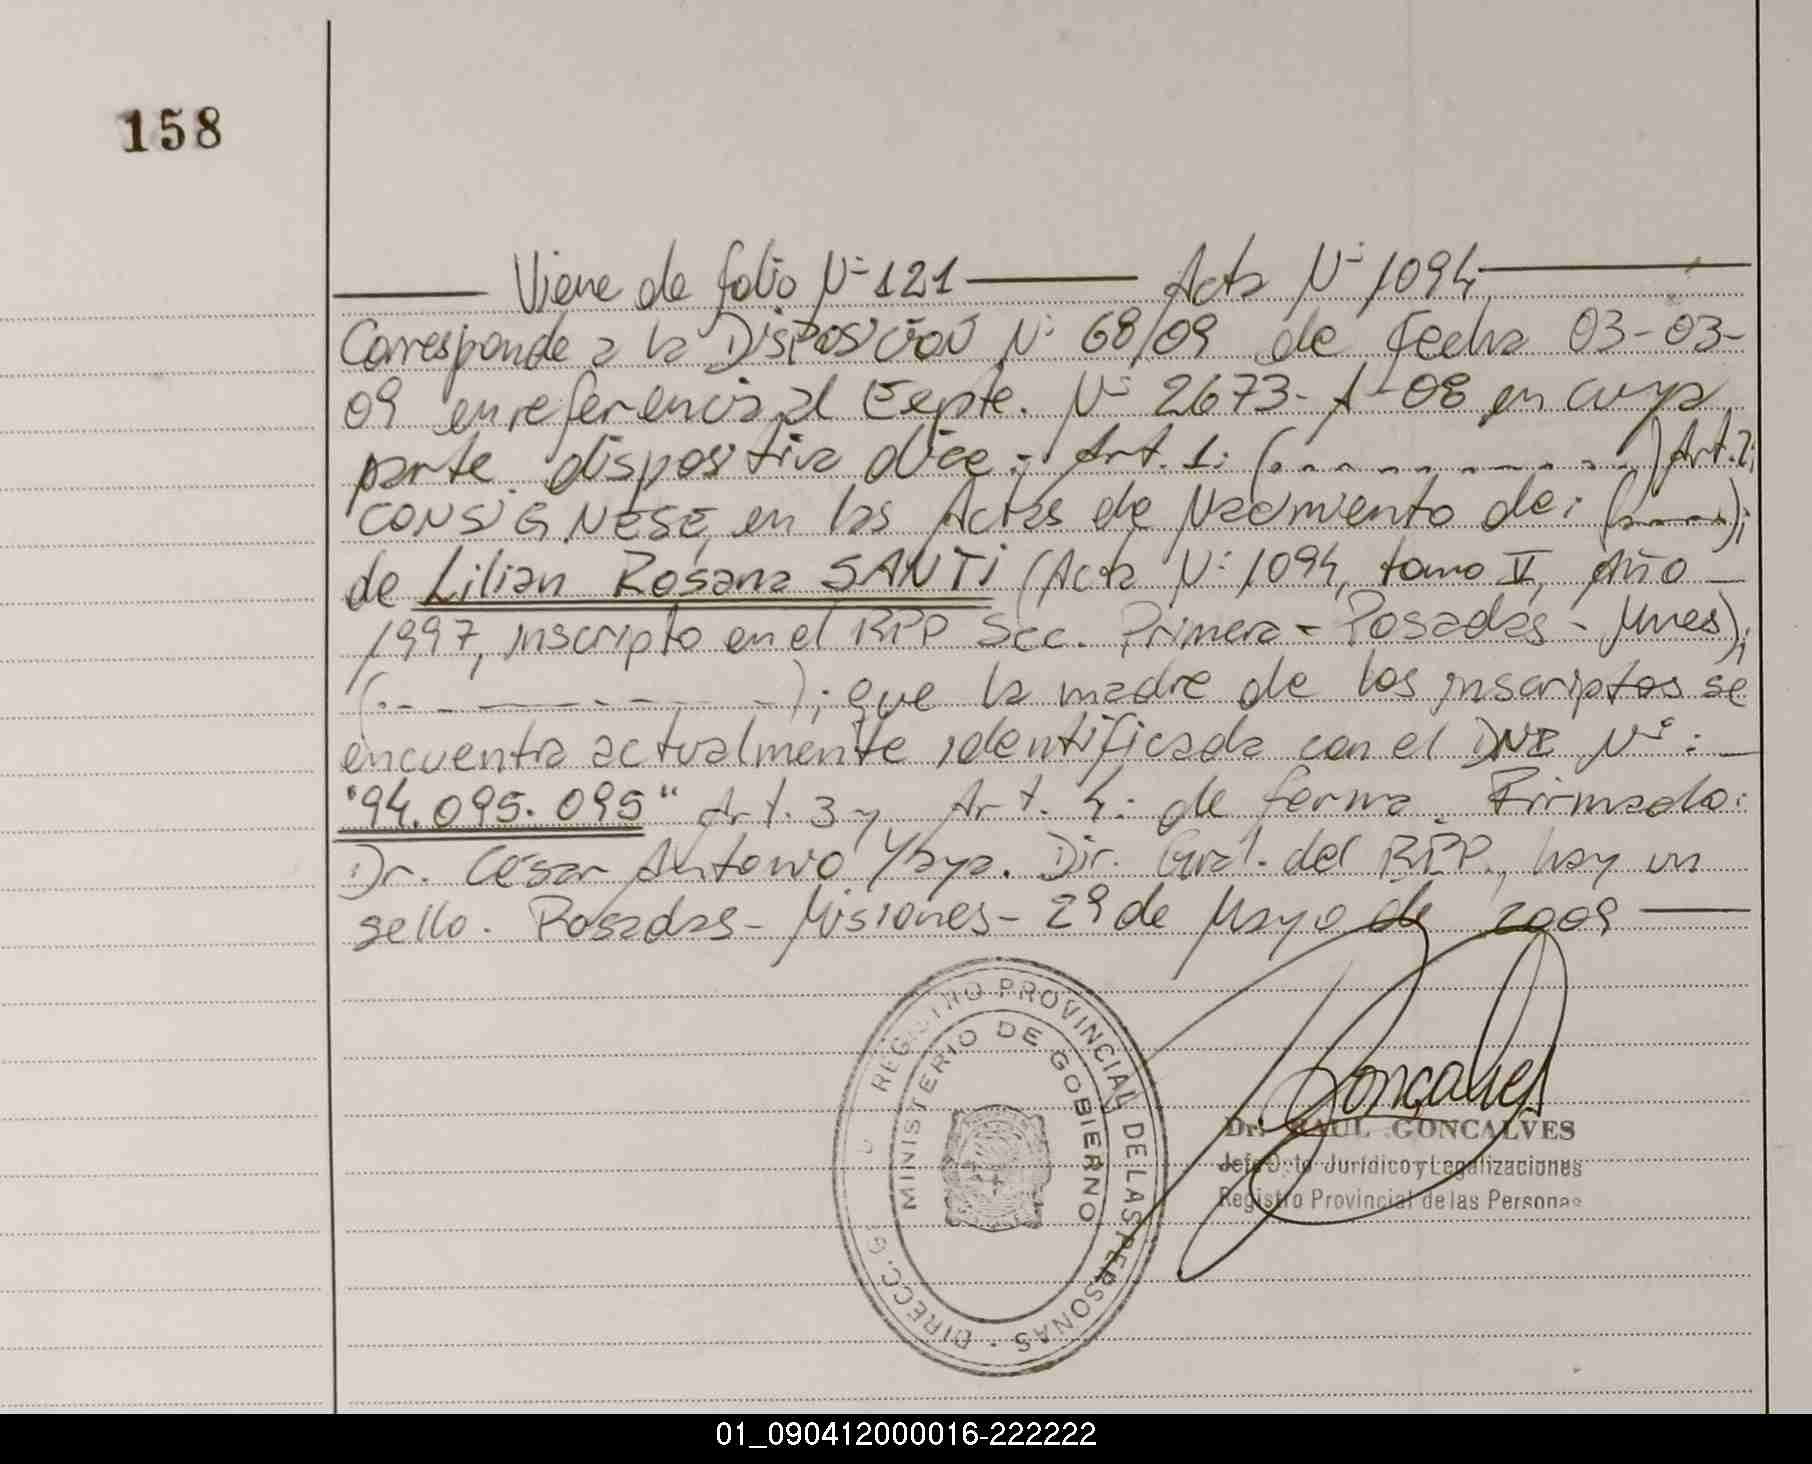 158
Viene de folio Nº 121 Acta Nº 1094
Corresponde a la DISPOSICION Nº 68/09 de fecha 03-03-
09 en referencia al Expte. Nº 2673-A-08 en cuya
parte dispositiva dice: Art. 1: (...........) Art. 2:
CONSIGNESE, en las Actas de Nacimiento de: (.....);
de Lilian Rosana SANTi (Acta Nº 1094, tomo V, Año
1997, inscripto en el RPP Sec. Primera - Posadas - Mnes);
(...........); que la madre de los inscriptos se
encuentra actualmente identificada con el DNI Nº:
"94.095.095" Art. 3 y Art. 4: de forma. Firmado:
Dr. Cesar Antonio Yaya. Dir. Gral. del RPP., hay un
sello. Posadas - Misiones - 29 de Mayo de 2009
REGISTRO PROVINCIAL DE LAS PERSONAS
MINISTERIO DE GOBIERNO
DIRECC. G
Goncalves
Dr. RAUL GONCALVES
Jefe Dpto Jurídico y Legalizaciones
Registro Provincial de las Personas
01_090412000016-222222